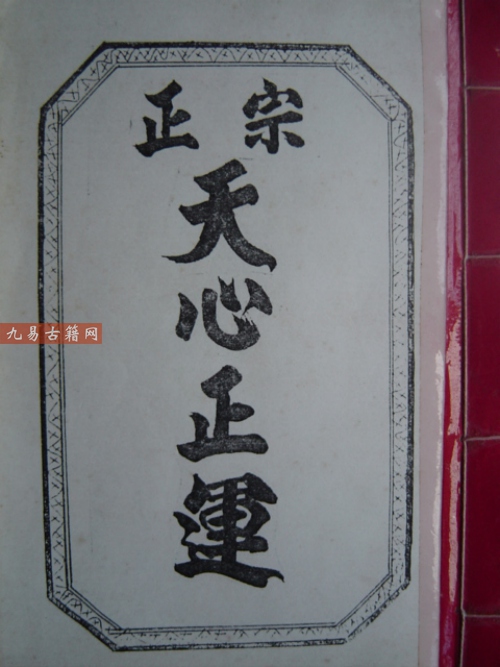 正宗
天心正運
九易古籍网